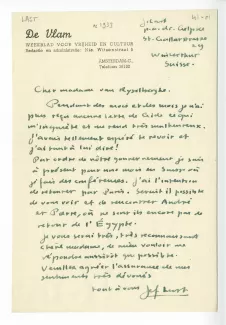 LAST
± 1937
De Vlam
WEEKBLAD VOOR VRIJHEID EN CULTUUR
AMSTERDAM-C.
J. Last
Winterthur
Suisse.
Cher madame van Rysselberghe.
Pendant des mois et des mois je n'ai
plus reçu aucune lettre de Gide ce qui
m'inquiète et me rend très malheureux.
J'avais tellement espéré le revoir et
j'ai tant à lui dire!
Par ordre de notre gouvernement je suis
à présent pour un mois en Suisse où
je fais des conférences. J'ai l'intention
de retourner par Paris. Serait il possible
de vous voir et de rencontrer André
et Pierre, où ne sont ils encore pas de
retour de l'Égypte.
Je vous serai très, très reconnaissant
chère madame, de bien vouloir me
répondre aussitôt que possible.
Veuillez agréer l'assurance de mes
sentiments très dévoués
tout à vous Jef Last